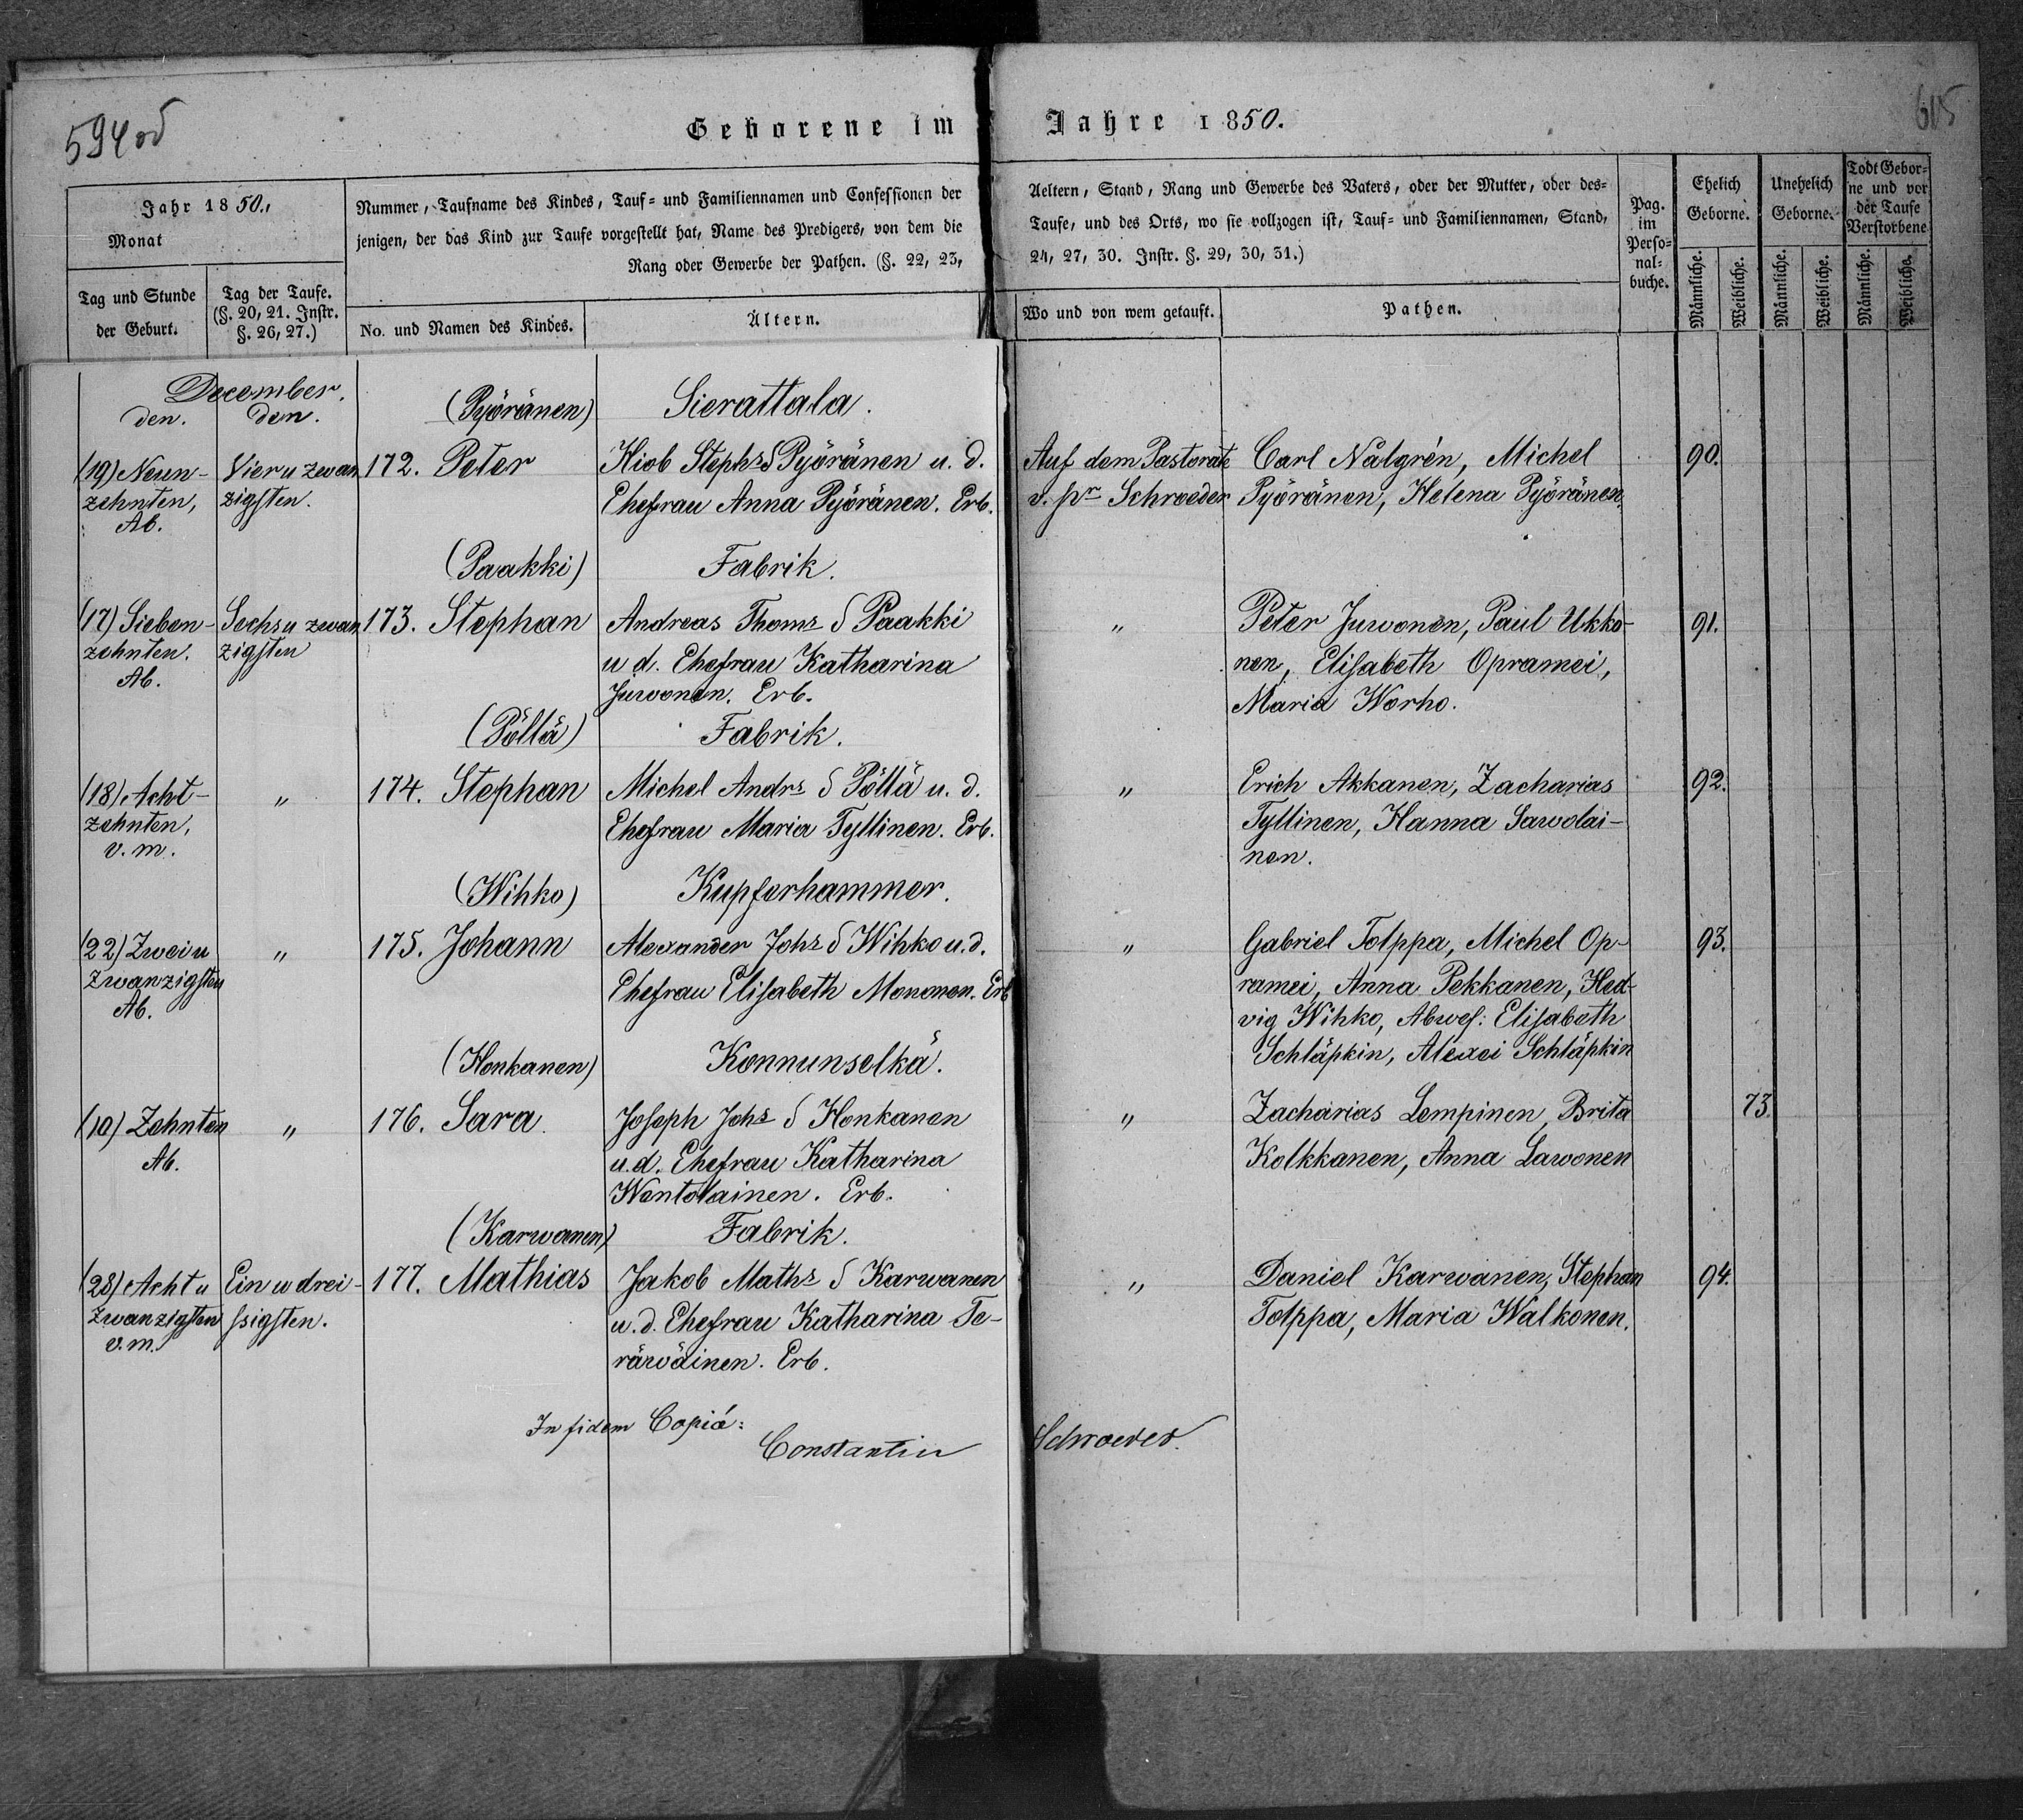 594
615
Geborene im Jahre 1850.
Jahr 1850.
Monat
Tag und Stunde
der Geburt.
Tag der Taufe.
(§. 20, 21. Instr.
§. 26, 27.)
Nummer, Taufname des Kindes, Tauf- und Familiennamen und Confessionen der
Aeltern, Stand, Rang und Gewerbe des Vaters, oder der Mutter, oder des-
jenigen, der das Kind zur Taufe vorgestellt hat, Name des Predigers, von dem die
Taufe, und des Orts, wo sie vollzogen ist, Tauf- und Familiennamen, Stand,
Rang oder Gewerbe der Pathen. (§. 22, 23,
24, 27, 30. Instr. §. 29, 30, 31.)
No. und Namen des Kindes.
Ältern.
Wo und von wem getauft.
Pathen.
Pag.
im
Perso-
nal-
buche.
Ehelich
Geborne.
Unehelich
Geborne.
Todt Gebor-
ne und vor
der Taufe
Verstorbene
Männliche.
Weibliche.
Männliche.
Weibliche.
Männliche.
Weibliche.
December.
den.
den.
(Pyöränen)
Sierattala.
(19) Neun-
zehnten,
Ab.
Vier u zwan
zigsten.
172. Peter
Hiob Stephs S Pyöränen u. d.
Ehefrau Anna Pyöränen. Erb.
Auf dem Pastorate
v. pr Schroeder
Carl Nalgrén, Michel
Pyöränen, Helena Pyöränen.
90.
(Paakki)
Fabrik.
(17) Sieben-
zehnten.
Ab.
Sechs u zwan
zigsten
173. Stephan
Andreas Thoms S Paakki
u d. Ehefrau Katharina
Juwonen. Erb.
"
Peter Juwonen, Paul Ukko-
nen, Elisabeth Opramei,
Maria Worho.
91.
(Pöllä)
Fabrik.
(18) Acht-
zehnten,
v. m.
"
174. Stephan
Michel Andrs S Pöllä u. d.
Ehefrau Maria Tyllinen. Erb.
"
Erich Akkanen, Zacharias
Tyllinen, Hanna Sawolai-
nen.
92.
(Wihko)
Kupferhammer.
(22) Zwei u
zwanzigsten
Ab.
"
175. Johann
Alexander Johs S Wihko u. d.
Ehefrau Elisabeth Mononen. Erb
"
Gabriel Tolppa, Michel Op-
ramei, Anna Pekkanen, Hed-
vig Wihko, Abwes: Elisabeth
Schläpkin, Alexei Schläpkin
93.
(Honkanen)
Konnunselkä.
(10) Zehnten
Ab.
"
176. Sara.
Joseph Johs S Honkanen
u. d. Ehefrau Katharina
Wentolainen. Erb.
"
Zacharias Lempinen, Brita
Kolkkanen, Anna Lawonen
73.
(Karwanen)
Fabrik.
(28) Acht u
zwanzigsten
v. m.
Ein u drei-
ssigsten.
177. Mathias
Jakob Maths S Karwanen
u. d. Ehefrau Katharina Te-
räwäinen. Erb.
"
Daniel Karwanen, Stephan
Tolppa, Maria Walkonen.
94.
In fidem Copiá:
Constantin Schroeder.